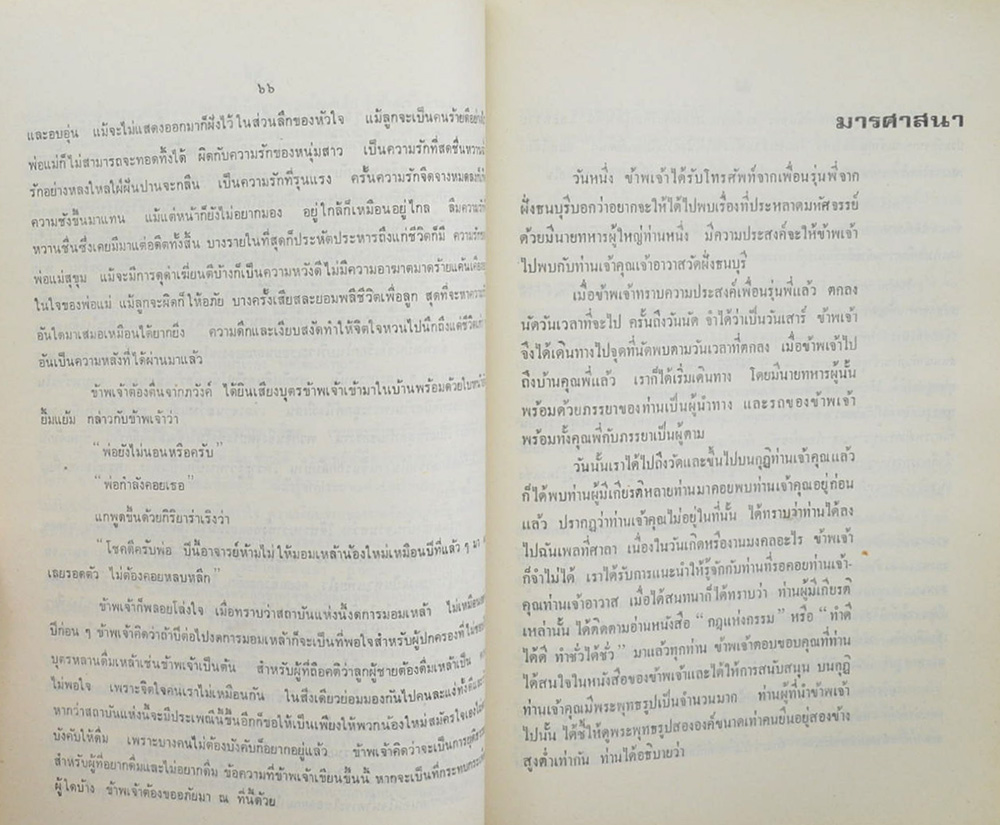 ๖๖
และอบอุ่น แม้จะไม่แสดงออกมาก็ฝังไว้ในส่วนลึกของหัวใจ แม้ลูกจะเป็นคนร้ายดีอย่างไร
พ่อแม่ก็ไม่สามารถจะทอดทิ้งได้ ผิดกับความรักของหนุ่มสาว เป็นความรักที่สดชื่นหวาน
รักอย่างหลงใหลใฝ่ฝันปานจะกลืน เป็นความรักที่รุนแรง ครั้นความรักจืดจางหมดมนต์
ความชังขึ้นมาแทน แม้แต่หน้าก็ยังไม่อยากมอง อยู่ใกล้ก็เหมือนอยู่ไกล ลืมความรัก
หวานชื่นซึ่งเคยมีมาแต่อดีตทั้งสิ้น บางรายในที่สุดก็ประหัตประหารถึงแก่ชีวิตก็มี ความรักของ
พ่อแม่สุขุม แม้จะมีการดุด่าเฆี่ยนตีบ้างก็เป็นความหวังดีไม่มีความอาฆาตมาดร้ายแค้นเคือง
ในใจของพ่อแม่ แม้ลูกจะผิดก็ให้อภัย บางครั้งเสียสละยอมพลีชีวิตเพื่อลูก สุดที่จะหาความรัก
อันใดมาเสมอเหมือนได้ยากยิ่ง ความดึกและเงียบสงัดทำให้จิตใจหวนไปนึกถึงแต่ชีวิตเก่า
อันเป็นความหลังที่ได้ผ่านมาแล้ว
ข้าพเจ้าต้องตื่นจากภวังค์ ได้ยินเสียงบุตรข้าพเจ้าเข้ามาในบ้านพร้อมด้วยใบหน้า
ยิ้มแย้ม กล่าวกับข้าพเจ้าว่า
“พ่อยังไม่นอนหรือครับ”
“พ่อกำลังคอยเธอ”
แกพูดขึ้นด้วยกิริยาร่าเริงว่า
“โชคดีครับพ่อ ปีนี้อาจารย์ห้ามไม่ให้มอมเหล้าน้องใหม่เหมือนปีที่แล้ว ๆ มา
เลยรอดตัว ไม่ต้องคอยหลบหลีก”
ข้าพเจ้าก็พลอยโล่งใจ เมื่อทราบว่าสถาบันแห่งนี้งดการมอมเหล้า ไม่เหมือน
ปีก่อน ๆ ข้าพเจ้าคิดว่าถ้าปีต่อไปงดการมอมเหล้าก็จะเป็นที่พอใจสำหรับผู้ปกครองที่ไม่ชอบ
บุตรหลานดื่มเหล้าเช่นข้าพเจ้าเป็นต้น สำหรับผู้ที่ถือคติว่าลูกผู้ชายต้องดื่มเหล้าเป็น
ไม่พอใจ เพราะจิตใจคนเราไม่เหมือนกัน ในสิ่งเดียวย่อมมองกันไปคนละแง่ทั้งดีและ
หากว่าสถาบันแห่งนี้จะมีประเพณีนี้ขึ้นอีกก็ขอให้เป็นเพียงให้พวกน้องใหม่สมัครใจเอง
บังคับให้ดื่ม เพราะบางคนไม่ต้องบังคับก็อยากอยู่แล้ว ข้าพเจ้าคิดว่าจะเป็นการยุติธรรม
สำหรับผู้ที่อยากดื่มและไม่อยากดื่ม ข้อความที่ข้าพเจ้าเขียนขึ้นนี้ หากจะเป็นที่กระทบกระเทือน
ผู้ใดบ้าง ข้าพเจ้าต้องขออภัยมา ณ ที่นี้ด้วย
มารศาสนา
วันหนึ่ง ข้าพเจ้าได้รับโทรศัพท์จากเพื่อนรุ่นพี่จาก
ฝั่งธนบุรีบอกว่าอยากจะให้ได้ไปพบเรื่องที่ประหลาดมหัศจรรย์
ด้วยมีนายทหารผู้ใหญ่ท่านหนึ่ง มีความประสงค์จะให้ข้าพเจ้า
ไปพบกับท่านเจ้าคุณเจ้าอาวาสวัดฝั่งธนบุรี
เมื่อข้าพเจ้าทราบความประสงค์เพื่อนรุ่นพี่แล้ว ตกลง
นัดวันเวลาที่จะไป ครั้นถึงวันนัด จำได้ว่าเป็นวันเสาร์ ข้าพเจ้า
จึงได้เดินทางไปจุดที่นัดพบตามวันเวลาที่ตกลง เมื่อข้าพเจ้าไป
ถึงบ้านคุณพี่แล้ว เราก็ได้เริ่มเดินทาง โดยมีนายทหารผู้นั้น
พร้อมด้วยภรรยาของท่านเป็นผู้นำทาง และรถของข้าพเจ้า
พร้อมทั้งคุณพี่กับภรรยาเป็นผู้ตาม
วันนั้นเราได้ไปถึงวัดและขึ้นไปบนกุฏิท่านเจ้าคุณแล้ว
ก็ได้พบท่านผู้มีเกียรติหลายท่านมาคอยพบท่านเจ้าคุณอยู่ก่อน
แล้ว ปรากฏว่าท่านเจ้าคุณไม่อยู่ในที่นั้น ได้ทราบว่าท่านได้ลง
ไปฉันเพลที่ศาลา เนื่องในวันเกิดหรืองานมงคลอะไร ข้าพเจ้า
ก็จำไม่ได้ เราได้รับการแนะนำให้รู้จักกับท่านที่รอคอยท่านเจ้า-
คุณท่านเจ้าอาวาส เมื่อได้สนทนาก็ได้ทราบว่า ท่านผู้มีเกียรติ
เหล่านั้น ได้ติดตามอ่านหนังสือ “กฎแห่งกรรม” หรือ “ทำดี
ได้ดี ทำชั่วได้ชั่ว” มาแล้วทุกท่าน ข้าพเจ้าตอบขอบคุณที่ท่าน
ได้สนใจในหนังสือของข้าพเจ้าและได้ให้การสนับสนุน บนกุฏิ
ท่านเจ้าคุณมีพระพุทธรูปเป็นจำนวนมาก ท่านผู้ที่นำข้าพเจ้า
ไปนั้น ได้ชี้ให้ดูพระพุทธรูปสององค์ขนาดเท่าคนยืนอยู่สองข้าง
สูงต่ำเท่ากัน ท่านได้อธิบายว่า